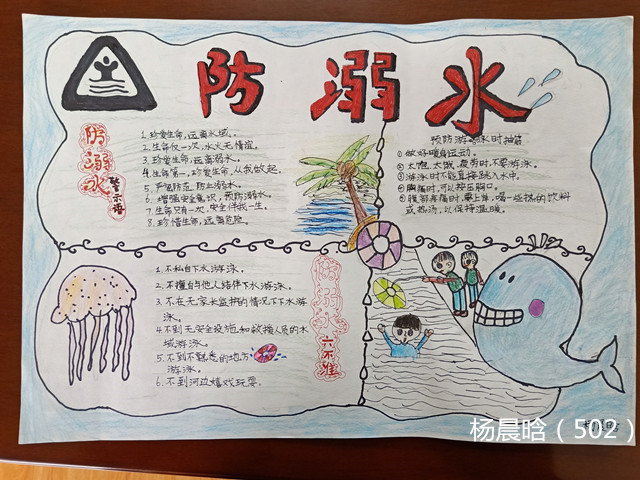 防溺水
防溺水
警示语
1.珍爱生命,远离水域。
2.生命仅一次,水火无情症。
3.珍爱生命,远离溺水。
4.生命第一,珍爱生命,从我做起。
5.严谨防范,防止溺水。
6.增强安全意识,预防溺水。
7.生命只有一次,安全伴我一生。
8.珍惜生命,远离危险。
预防游泳时抽筋
①做好暖身运动。
②太饱、太饿、疲劳时,不要游泳。
③游泳时不能直接跳入水中。
④胸痛时,可以按压胸口。
⑤腹部疼痛时,要上岸,喝一些热的饮料
或热汤,以保持温暖。
1.不私自下水游泳。
2.不擅自与他人结伴下水游泳。
3.不在无家长监护的情况下下水游
泳。
4.不到无安全设施和救援人员的水
域游泳。
5.不到不熟悉的地方
游泳。
6.不到河边嬉戏玩耍。
防溺水
六不准
杨晨晗
杨晨晗(502)